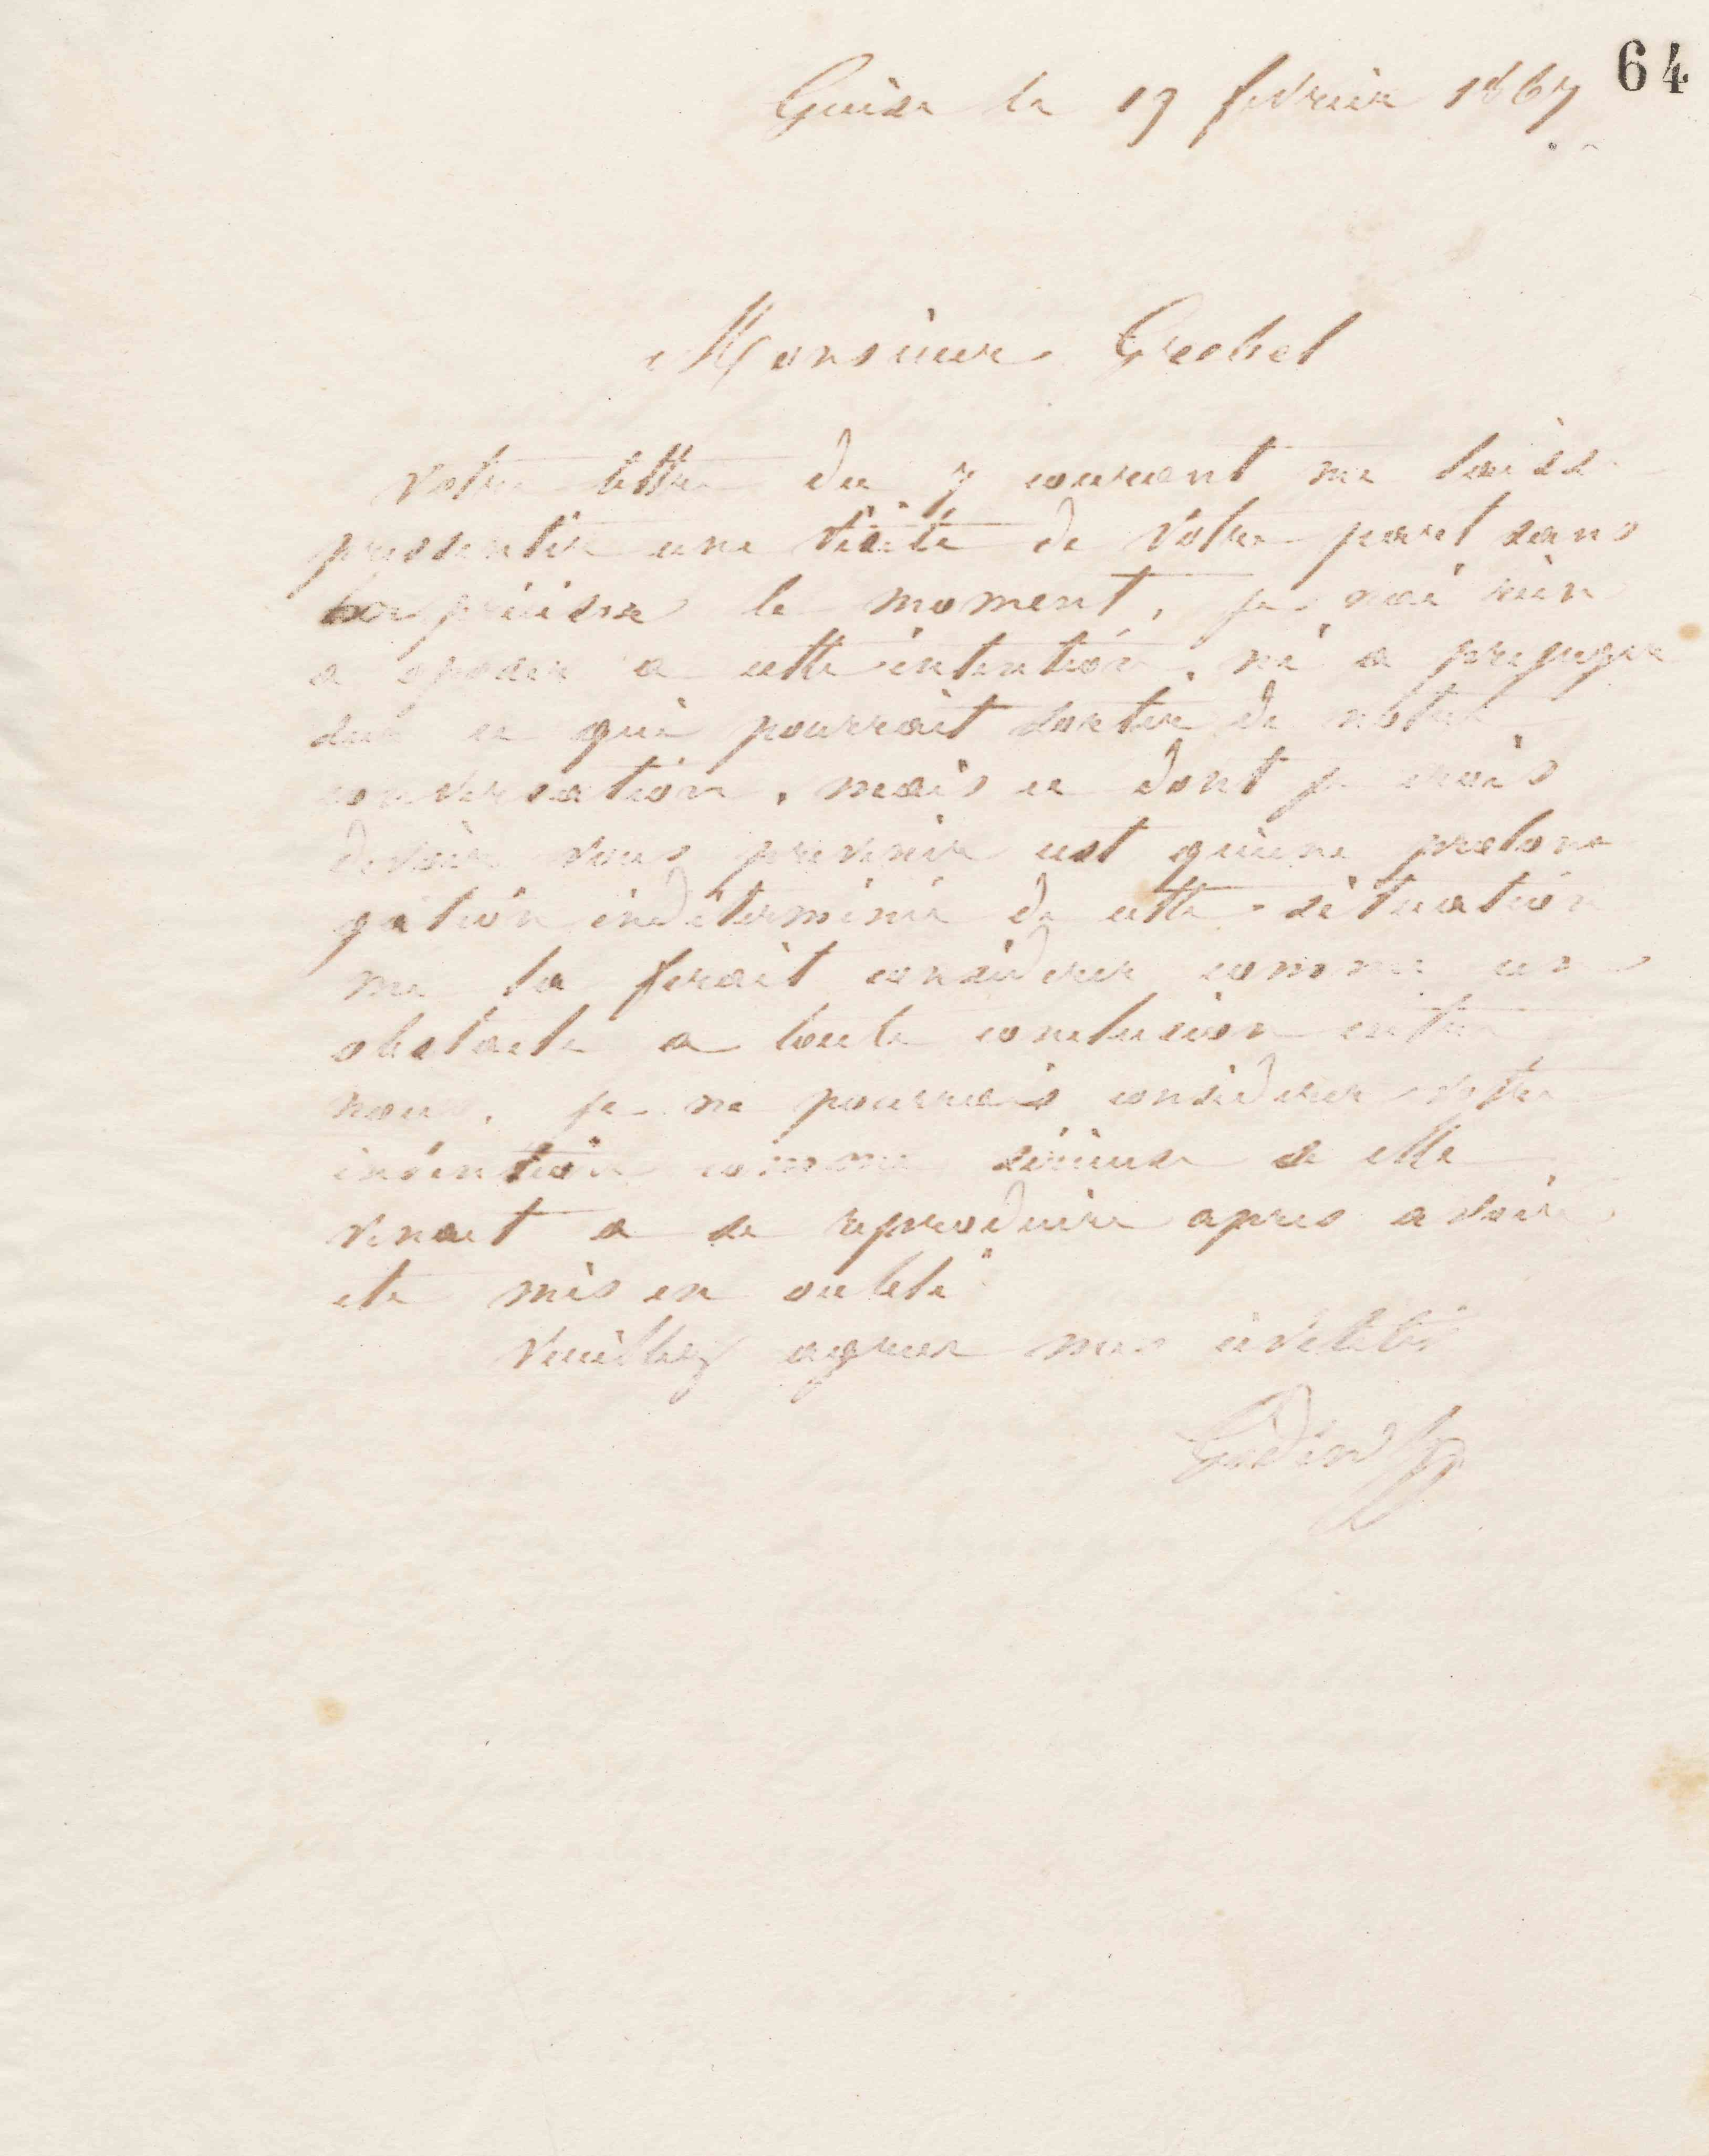 64
Guise le 19 fevrier 1867
Monsieur Grebel
Votre lettre du 7 courant me laisse
pressentir une visite de votre part sans
preciser le moment, je n'ai rien
a oposer a cette intention, ni a prejuger
sur ce qui pourrait sortir de notre
conversation, mais ce dont je crois
devoir vous prevenir cest qu'une prolon
gation indéterminée de cette situation
me la ferait considerer comme un
obstacle a toute conclusion entre
nous. je ne pourrais considerer votre
intention comme sérieuse si elle
venait a se reproduire apres avoir
ete mis en oubli
Veuillez agreer mes civilités
Godin